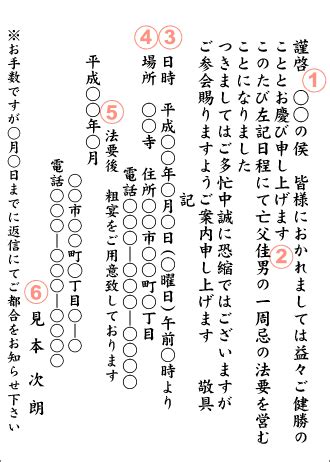 謹啓　〇〇の侯　皆様におかれましては益々ご健勝の
こととお慶び申し上げます
このたび左記日程にて亡父佳男の一周忌の法要を営む
ことになりました
つきましてはご多忙中誠に恐縮ではございますが
ご参会賜りますようご案内申し上げます　　敬具
記
日時　平成〇〇年〇月〇日(〇曜日)午前〇時より
場所　〇〇寺　住所〇〇市〇〇町〇丁目
電話〇〇〇―〇〇〇―〇〇〇〇
法要後　粗宴をご用意致しております
平成〇〇年〇月
〇〇市〇〇町〇丁目〇―〇
電話〇〇〇―〇〇〇―〇〇〇〇
見本　次朗
※お手数ですが〇月〇日までに返信にてご都合をお知らせ下さい
①
②
③
④
⑤
⑥